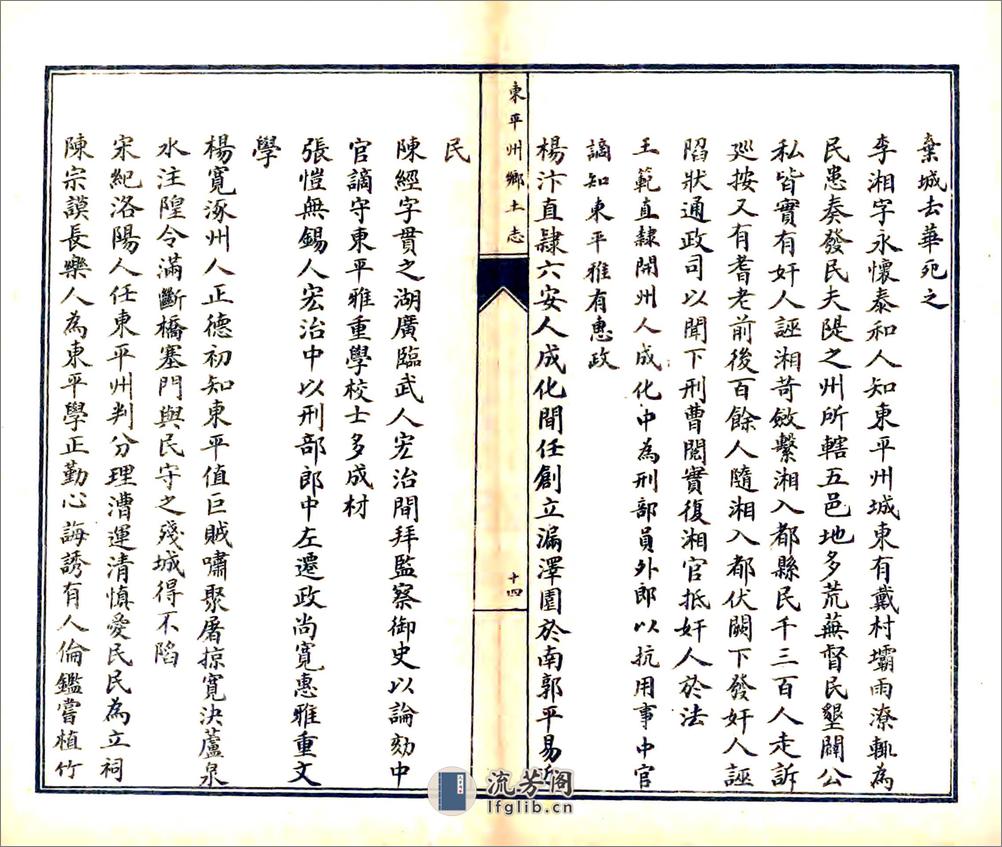 棄城去華死之
李湘字永懷泰和人知東平州城東有戴村壩雨潦輒為
民患奏發民夫隄之州所轄五邑地多荒蕪督民墾闢公
私皆實有奸人誣湘苛斂繫湘入都縣民千三百人走訴
廵按又有耆老前後百餘人隨湘入都伏闕下發奸人誣
陷狀通政司以聞下刑曹閱實復湘官抵奸人於法
王範直隸開州人成化中為刑部員外郎以抗用事中官
謫知東平雅有惠政
楊汴直隸六安人成化間任創立漏澤園於南郭平易近
東平州鄉土志
十四
民
陳經字貫之湖廣臨武人宏治間拜監察御史以論劾中
官謫守東平雅重學校士多成材
張愷無錫人宏治中以刑部郎中左遷政尚寬惠雅重文
學
楊寬涿州人正德初知東平值巨賊嘯聚屠掠寬決蘆泉
水注隍令滿斷橋塞門與民守之殘城得不陷
宋紀洛陽人任東平州判分理漕運清慎愛民民為立祠
陳宗謨長樂人為東平學正勤心誨誘有人倫鑑嘗植竹
流芳閣
lfglib.cn